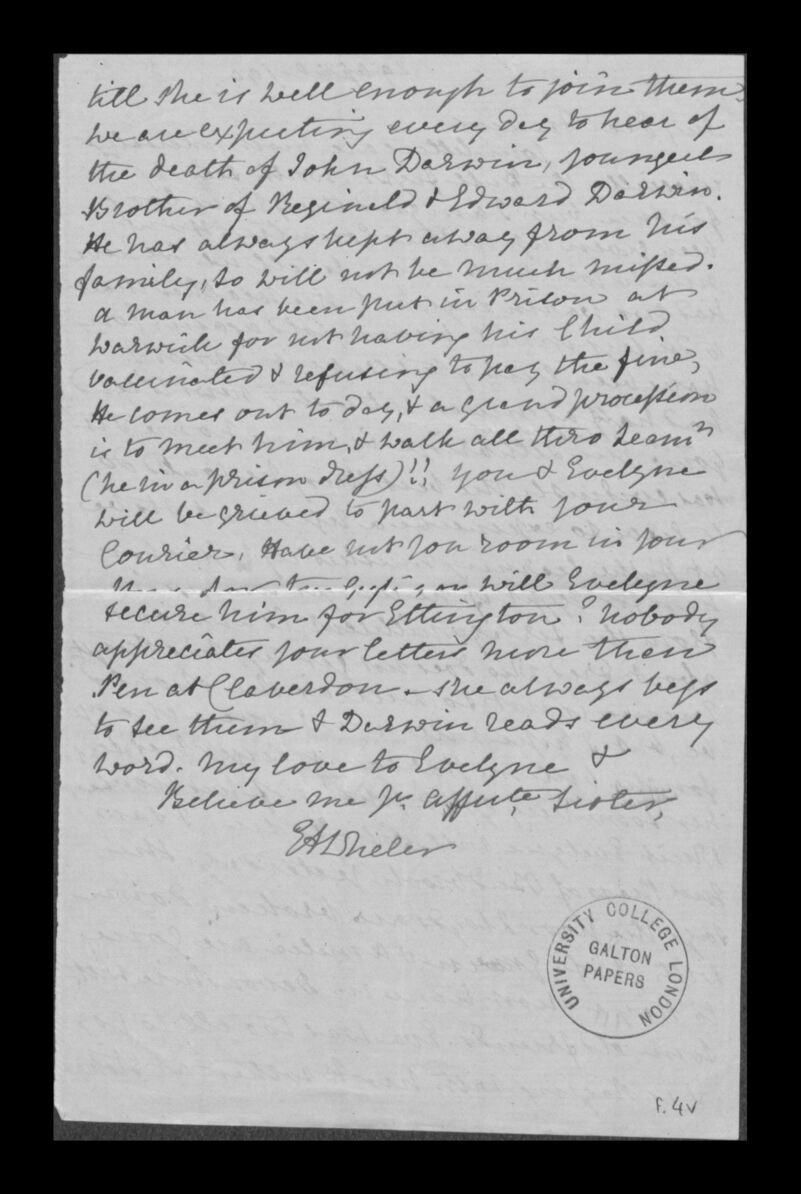 till she is well enough to join them.
we are expecting every day to hear of
the death of John Darwin, youngest
Brother of Reginald & Edward Darwin.
He has always kept away from his
family, so will not be much missed.
a man has been put in Prison at
Warwick for not having his Child
vaccinated & refusing to pay the fine,
He comes out to day, & a grand procession
is to meet him, & walk all thro Leamn
(he in a prison dress)!! you & Evelyne
will be grieved to part with your
Courier. Have not you room in your
will Evelyne
secure him for Ettington? nobody
appreciates your letters more than
Pen at Claverdon. she always begs
to see them & Darwin reads every
word. My love to Evelyne &
Believe me yr. affecte. Sister,
EAWheler
UNIVERSITY COLLEGE LONDON
GALTON
PAPERS
F.4v